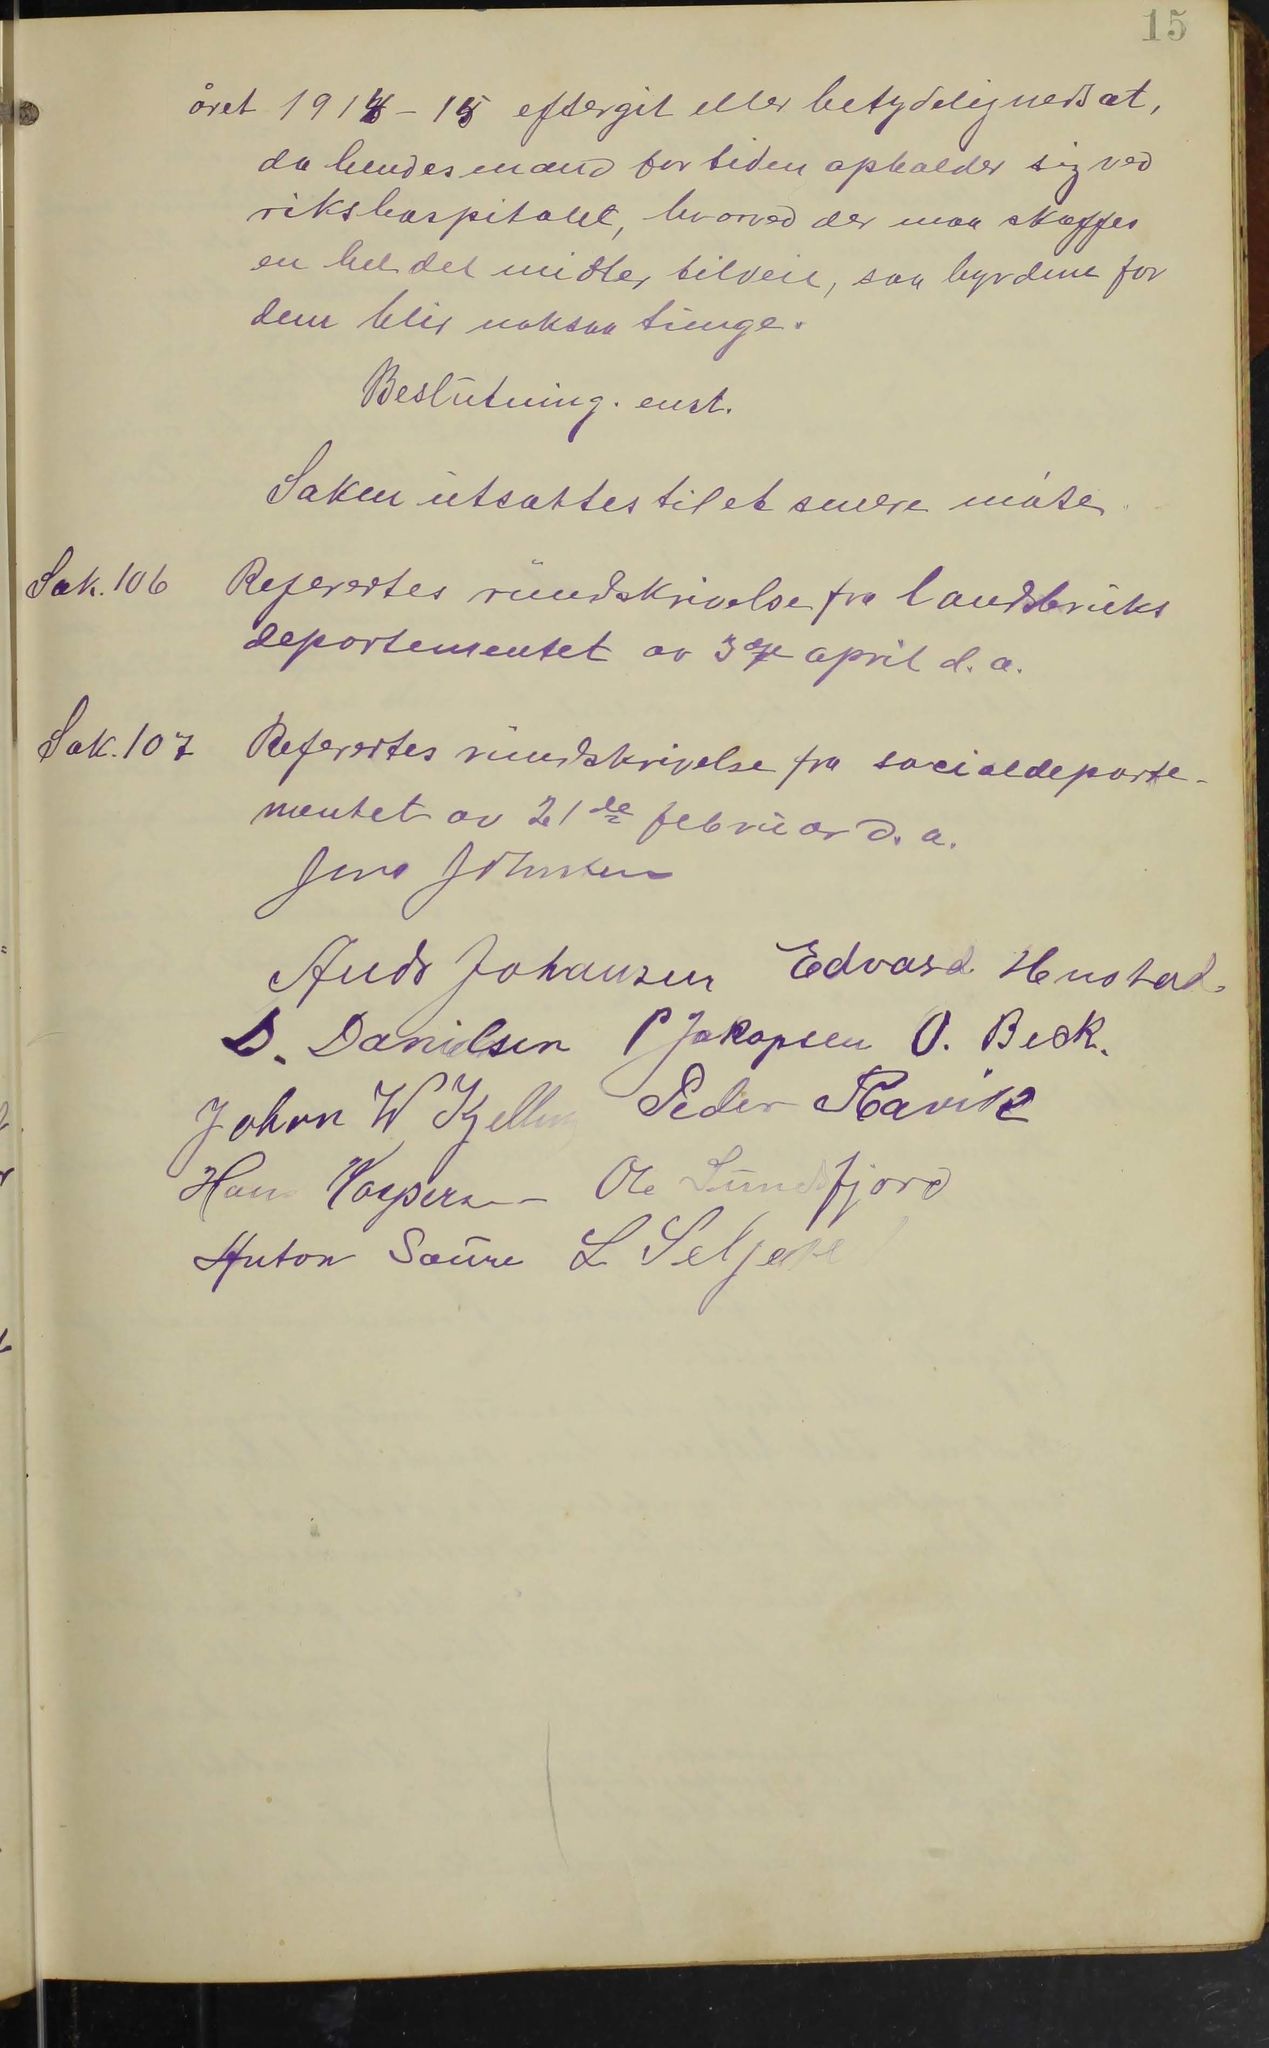 15
året 1914-15 eftergit eller betydelig nedsat,
da hendes mand for tiden opholder sig ved
rikshospitalet, hvorved der maa skaffes
en hel del midler tilveie, saa byrdene for
dem blir noksaa tunge.
Beslutning. enst.
Saken utsattes til et senere møte.
Sak. 106 Referertes rundskrivelse fra landsbruks
departementet av 3dje april d. a.
Sak. 107 Referertes rundskrivelse fra socialdeparte-
mentet av 21de februar d. a.
Jens Johnsen
Ands Johansen Edvard Hustad.
D. Danielsen P Jakopsen O. Beck.
Johan W Kjelling Peder Ravik
Hans Kaspersen Ole Sundsfjord
Anton Saure L Seljeseth